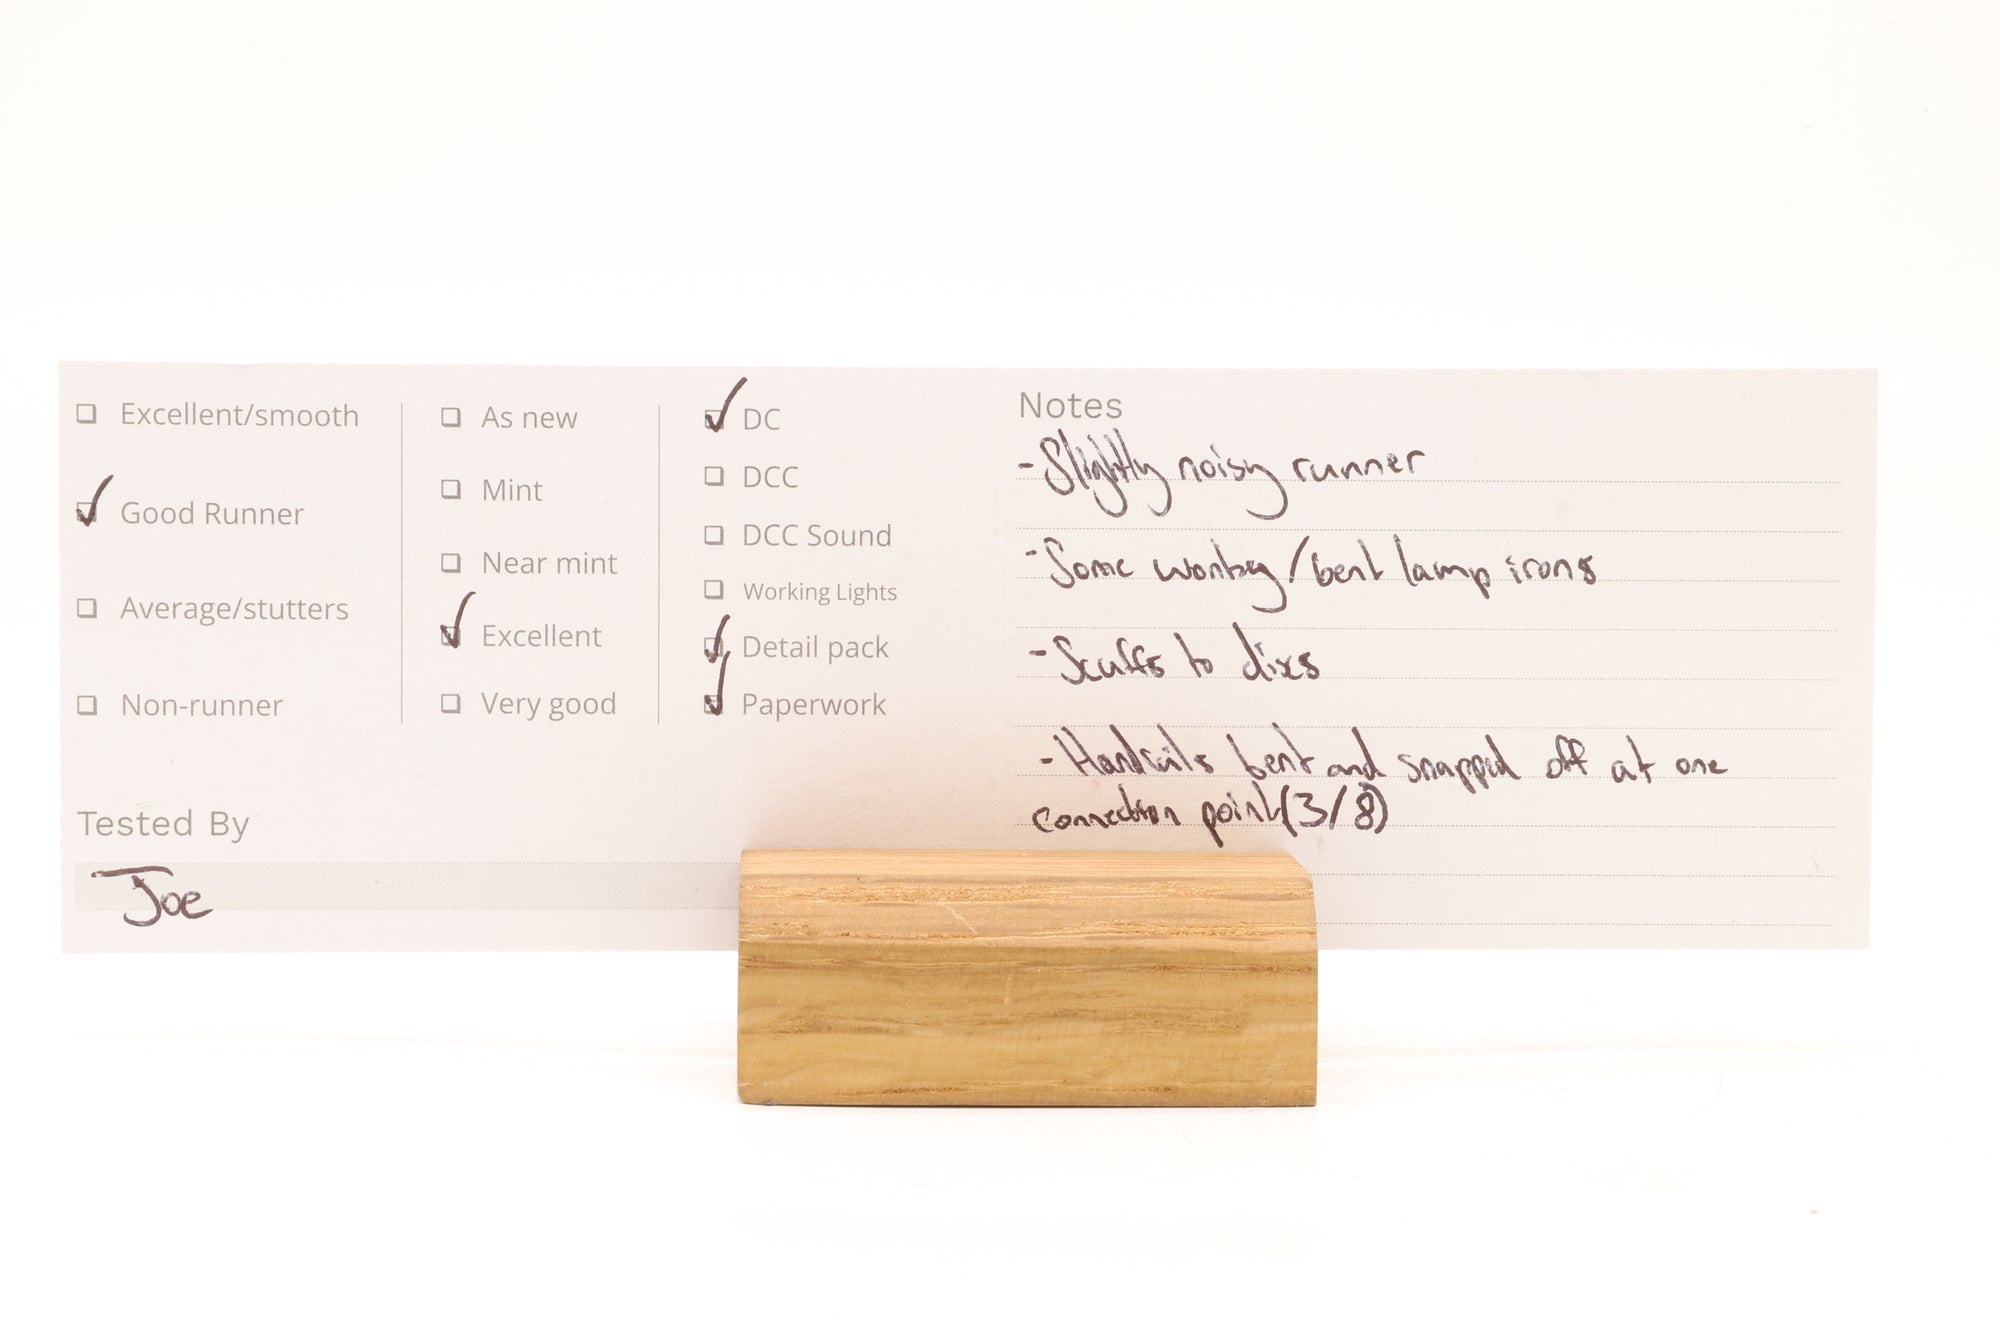 Excellent/smooth
Good Runner
Average/stutters
Non-runner
As new
Mint
Near mint
Excellent
Very good
DC
DCC
DCC Sound
Working Lights
Detail pack
Paperwork
Tested By
Joe
Notes
- Slightly noisy runner
- Some wonky/bent lamp irons
- Scuffs to discs
- Handrails bent and snapped off at one
connection point (3/8)